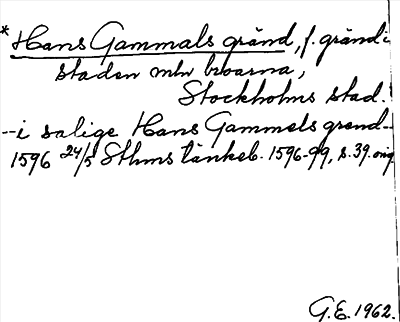 *Hans Gammals gränd, f. gränd i
staden mln broarna,
Stockholms stad.
--i salige Hans Gammels grend--
1596 24/5 Sthms tänkeb. 1596-99, s. 39. orig
G.E. 1962.